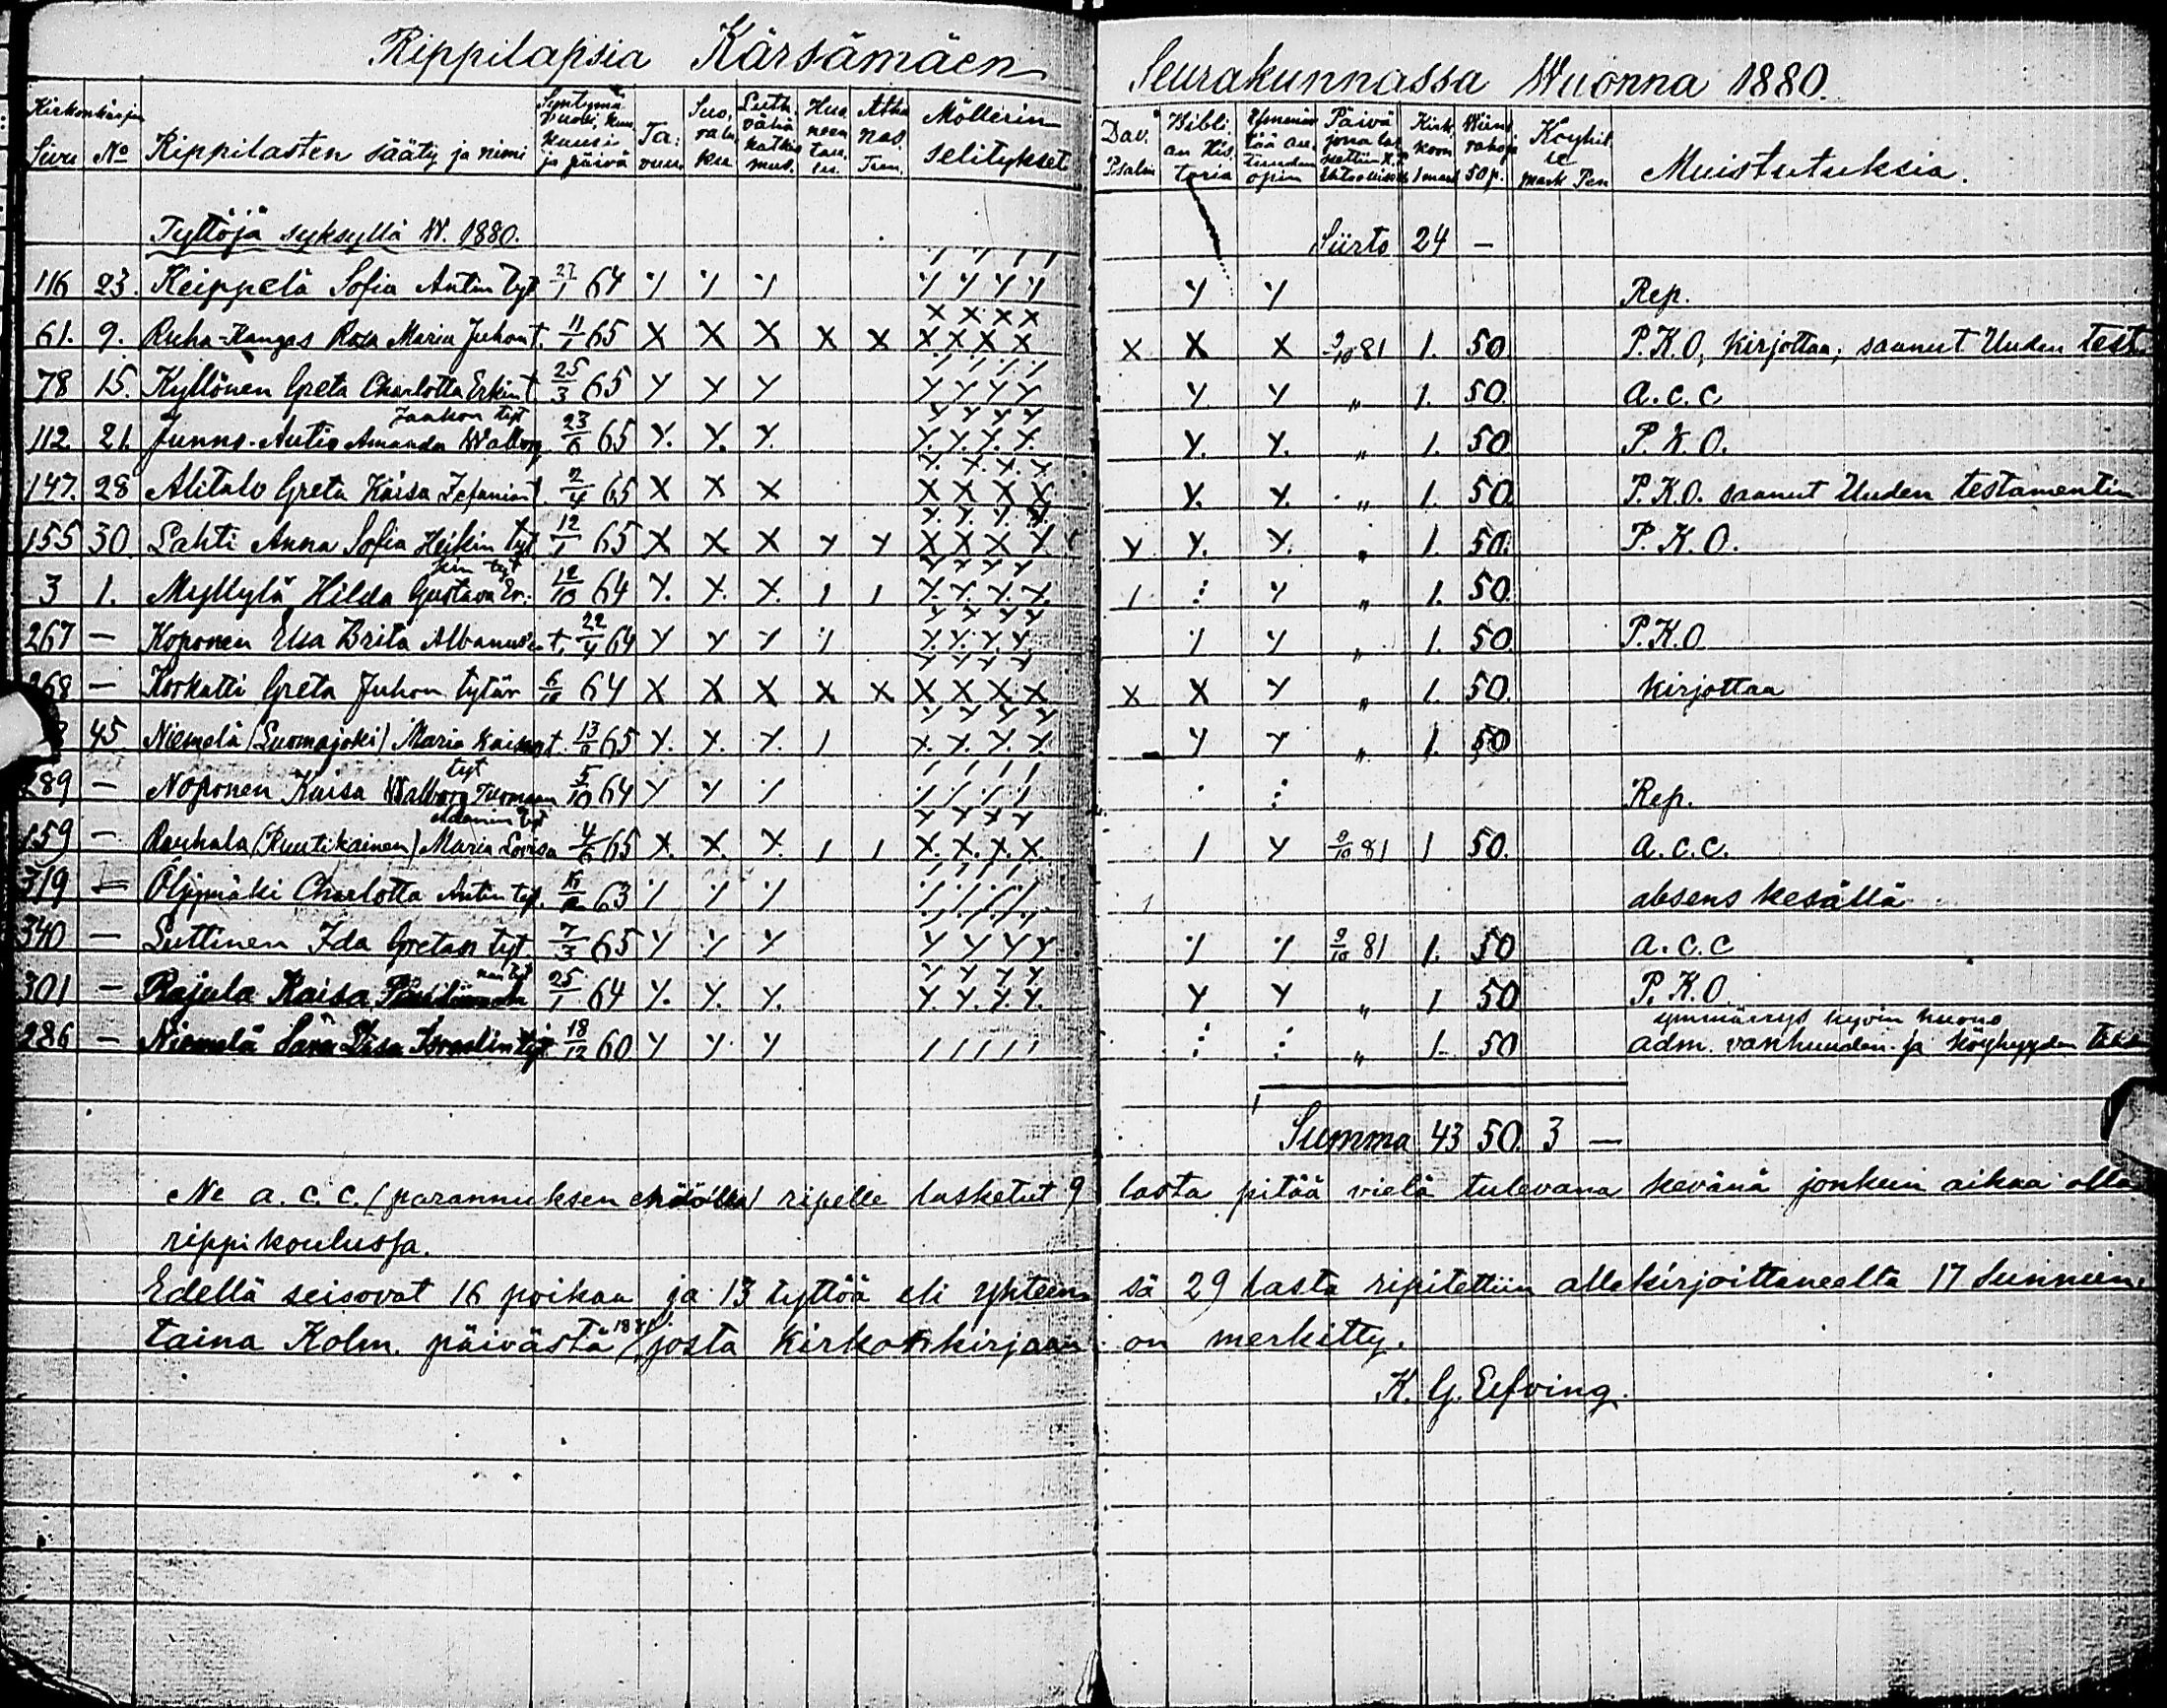 Rippilapsia Kärsämäen Seurakunnassa Wuonna 1880.
Kirkonkirjan
Sivu No Rippilasten sääty ja nimi Syntymä vuosi, kuu kuusi ja päivä Ta: vuu Suo, ra lu, ku Luth. vähä katkis mus. Huo neen tau. lu. Atha nas. Tun. Möllerin selitykset Dav. Psalm Bibli: an His toria Ymmär tää au. tuuden opin Päivä jona las kettiin H. P. Ehtoolliselle Kirk, koon 1 mark Wiini rahoja 50 p. Köyhil. le mark Pen Muistutuksia.
Tyttöjä syksyllä W. 1880. Siirto 24 —
116 23. Keippelä Sofia Antin tyt 27/1 64 Rep.
61. 9. Ruha-Kangas Rosa Maria Juhon t. 11/1 65 X X X X X X X X X X X X 9/10 81 1. 50 P. K. O, kirjottaa; saanut Uuden test.
78 15. Kyllönen Greta Charlotta Erkin t. 25/3 65 y y y y y y y y y „ 1. 50. a. c. c
Jaakon tyt
112. 21. Junno-Autio Amanda Walborg 23/6 65 y. y. y. y. y. y. y. y. y. „ 1. 50 P. K. O.
147. 28 Alitalo Greta Kaisa Zefanian t. 2/4 65 X X X X X X X y. y. „ 1. 50. P. K. O. saanut Uuden testamentin
155 30. Lahti Anna Sofia Heikin tyt. 12/1 65 X X X y y X X X y y y. y. „ 1. 50. P. K. O.
kin tyt
3 1. Myllylä Hilda Gustava Er: 12/10 64 y. y. y. y. y. y. y. y „ 1. 50.
267 — Koponen Elsa Brita Albanus'en t. 22/4 64 y y y y. y. y. y y „ 1. 50 P. K. O
268 — Korkatti Greta Juhon tytär 6/10 64 X X X X X X X X X X X y „ 1. 50. kirjottaa
45. Niemelä (Luomajoki) Maria Kaisan t. 65 y. y. y. y. y. y. y. y y „ 1. 50
tyt
289 — Noponen Kaisa Walborg Tuomaan 5/10 64 Rep.
Adamin tyt
159 — Rauhala (Ruutikainen) Maria Lovisa 4/6 65 X. X. X. X. X. X. X. y 9/10 81 1 50. a. c. c.
319 — Öljymäki Charlotta Antin tyt. 63 absens kesällä
340 — Luttinen Ida Gretan tyt. 7/3 65 y y y y y y y 9/10 81 1. 50 a. c. c
nan tyt
301 — Rajula Kaisa 25/1 64 y. y. y. y. y. y. y. y y „ 1 50 P. K. O.
ymmärrys hyvin huono
286 — Niemelä Sara Disa Israelin tyt. 18/12 60 y y y „ 1. 50 adm. vanhuuden- ja köyhyyden
Summa 43 50. 3 —
Ne a. c. c. (parannuksen ehdolla) ripelle lasketut 9 lasta pitää vielä tulevana kevänä jonkun aikaa olla
rippikoulussa.
Edellä seisovat 16 poikaa ja 13 tyttöä eli yhteen sä 29 lasta ripitettiin allekirjoittaneelta 17 Sunnun.
taina Kolm. päivästä josta kirkonkirjaan on merkitty.
K. G. Elfving.